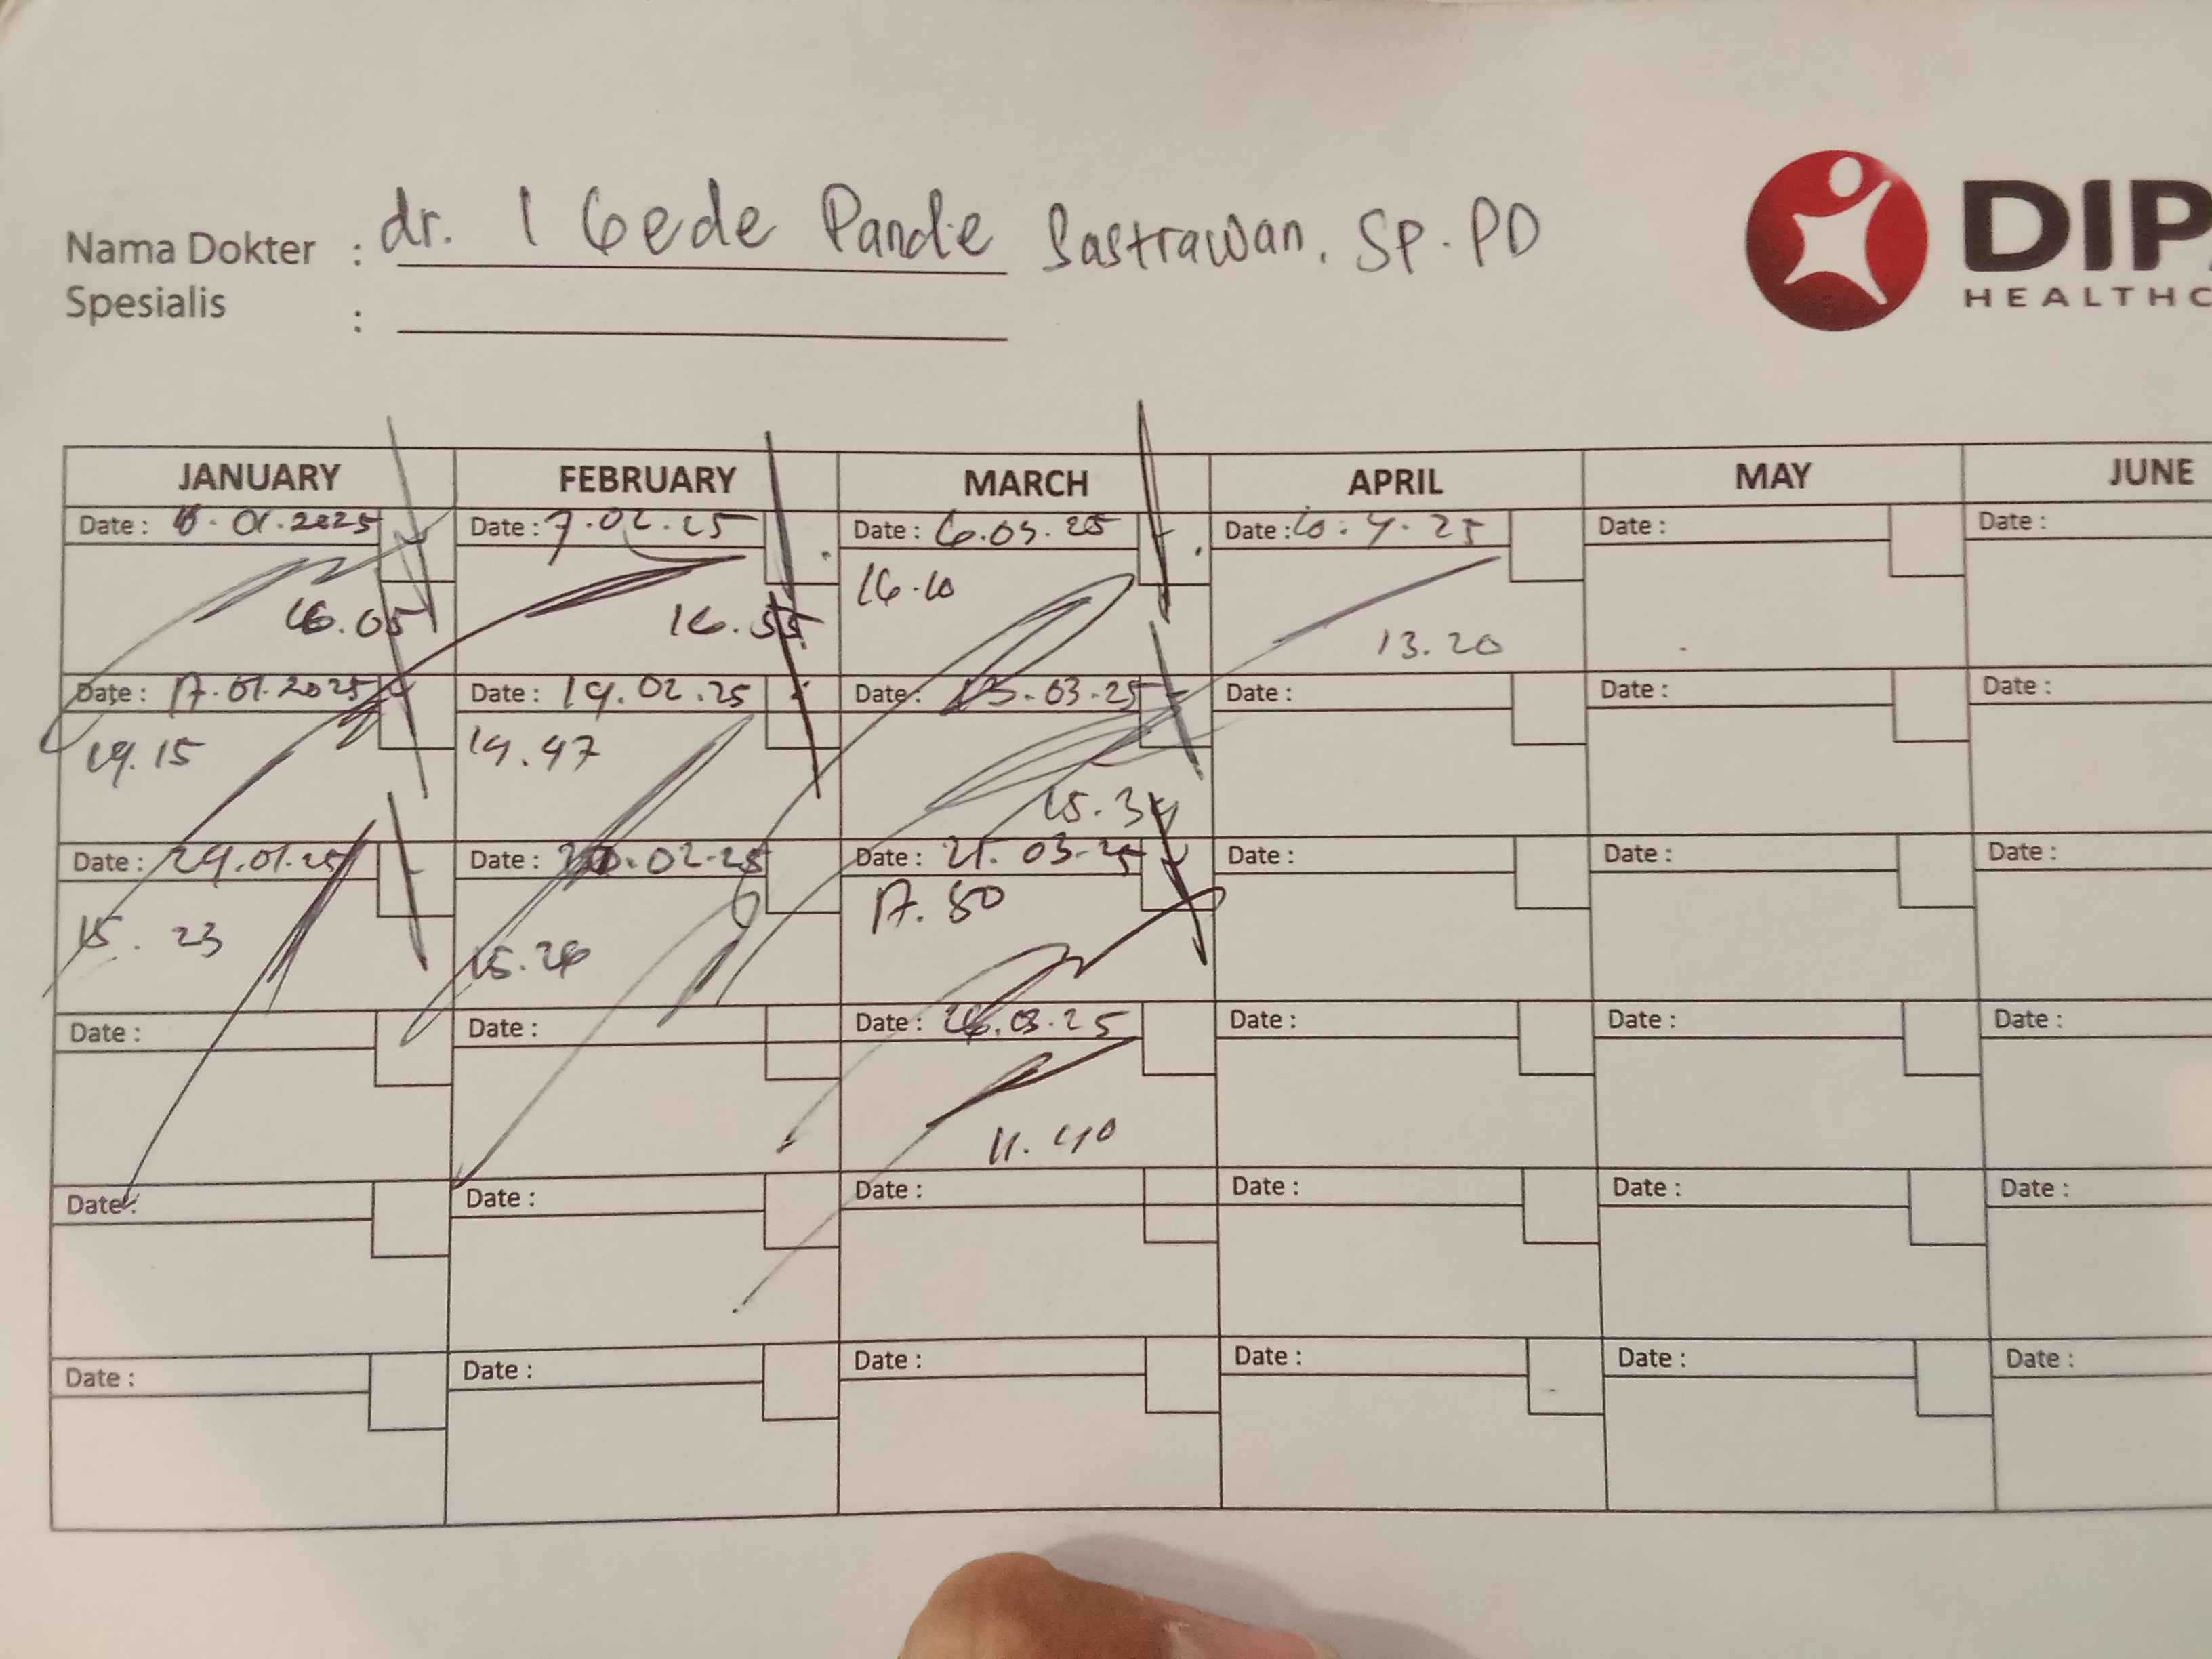 Nama Dokter : dr. I Gede Pande Sastrawan. Sp. PD
Spesialis :
DIP
HEALTHC
JANUARY FEBRUARY MARCH APRIL MAY JUNE
Date : 01.2025 Date : 7.02.25 Date : 6.03.25 Date : 10.4.25 Date : Date :
16.05 16.55 16.10 13.20
Date : 17.01.2025 Date : 19.02.25 Date : 13.03.25 Date : Date : Date :
19.15 14.47 15.34
Date : 29.01.25 Date : 02.25 Date : 21.03.25 Date : Date : Date :
15.23 15.26 17.50
Date : Date : Date : 26.03.25 Date : Date : Date :
11.40
Date : Date : Date : Date : Date : Date :
Date : Date : Date : Date : Date : Date :